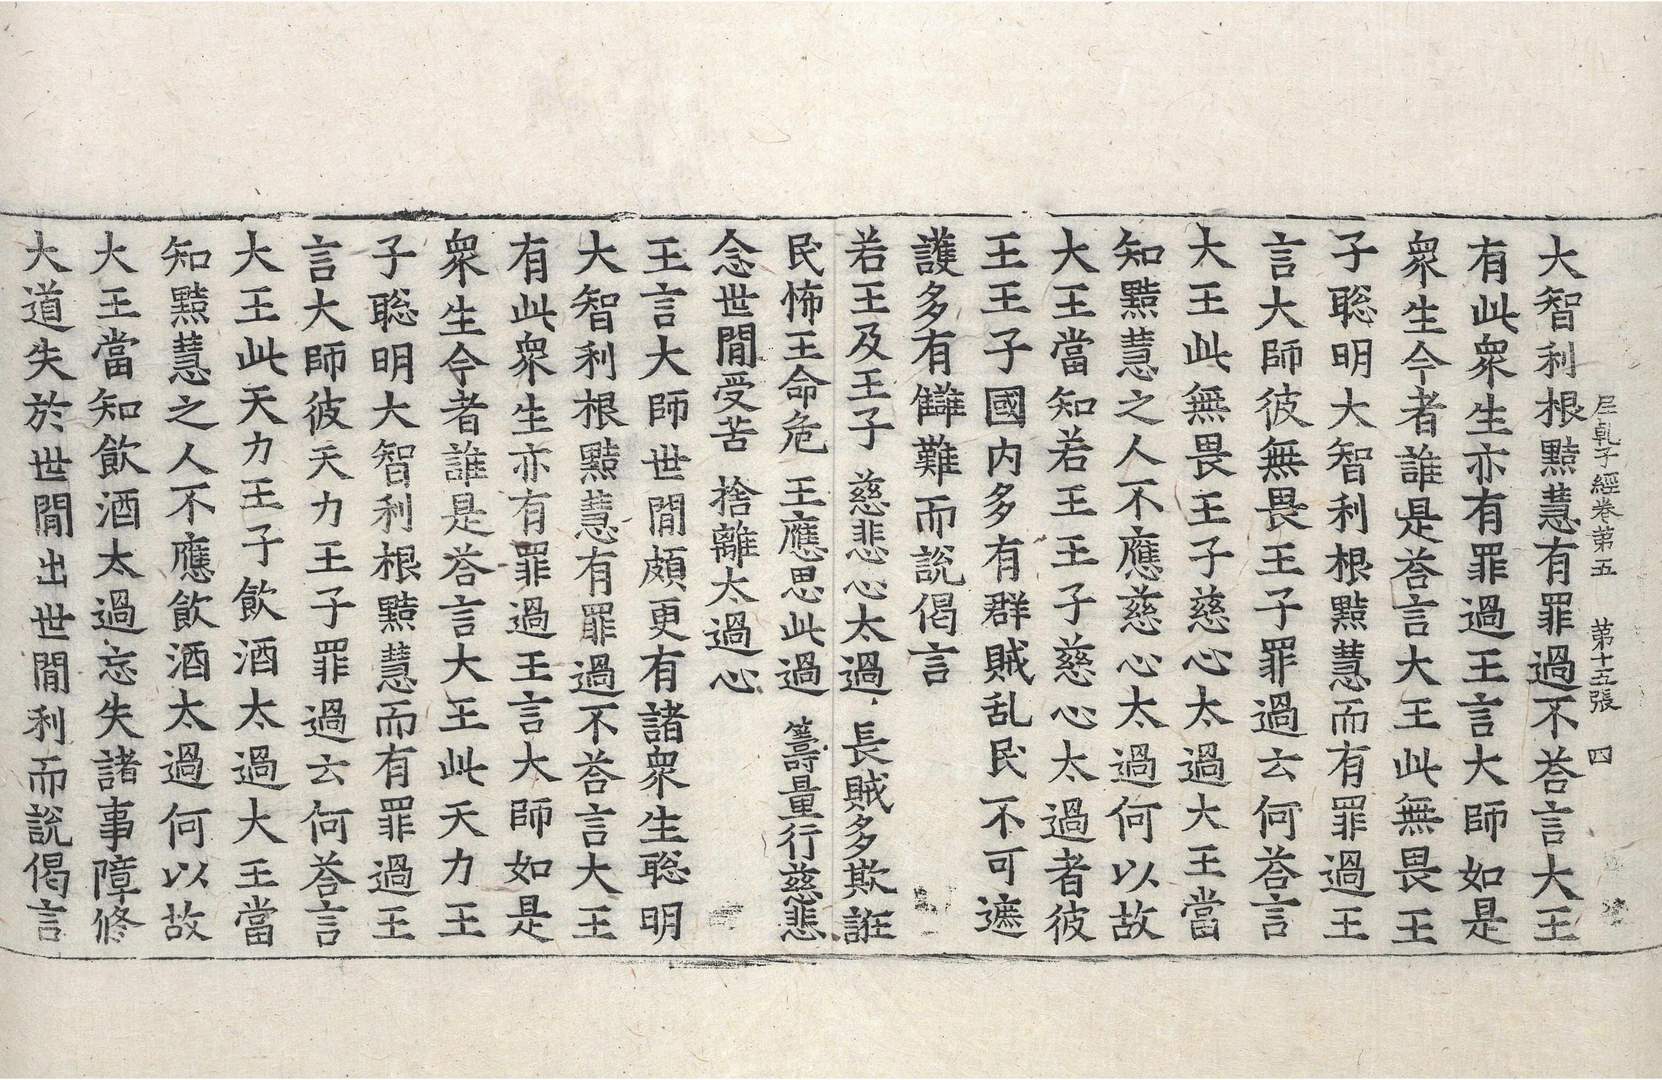 尼乹子經卷第五 第十五張 四
大智利根黠慧有罪過不荅言大王
有此衆生亦有罪過王言大師如是
衆生今者誰是荅言大王此無畏王
子聡明大智利根黠慧而有罪過王
言大師彼無畏王子罪過云何荅言
大王此無畏王子慈心太過大王當
知黠慧之人不應慈心太過何以故
大王當知若王王子慈心太過者彼
王王子國内多有群賊乱民不可遮
護多有讎難而說偈言
若王及王子 慈悲心太過 長賊多欺誑
民怖王命危 王應思此過 籌量行慈悲
念世閒受苦 捨離太過心
王言大師世閒頗更有諸衆生聡明
大智利根黠慧有罪過不荅言大王
有此衆生亦有罪過王言大師如是
衆生今者誰是荅言大王此天力王
子聡明大智利根黠慧而有罪過王
言大師彼天力王子罪過云何荅言
大王此天力王子飲酒太過大王當
知黠慧之人不應飲酒太過何以故
大王當知飲酒太過忘失諸事障修
大道失於世閒出世閒利而說偈言